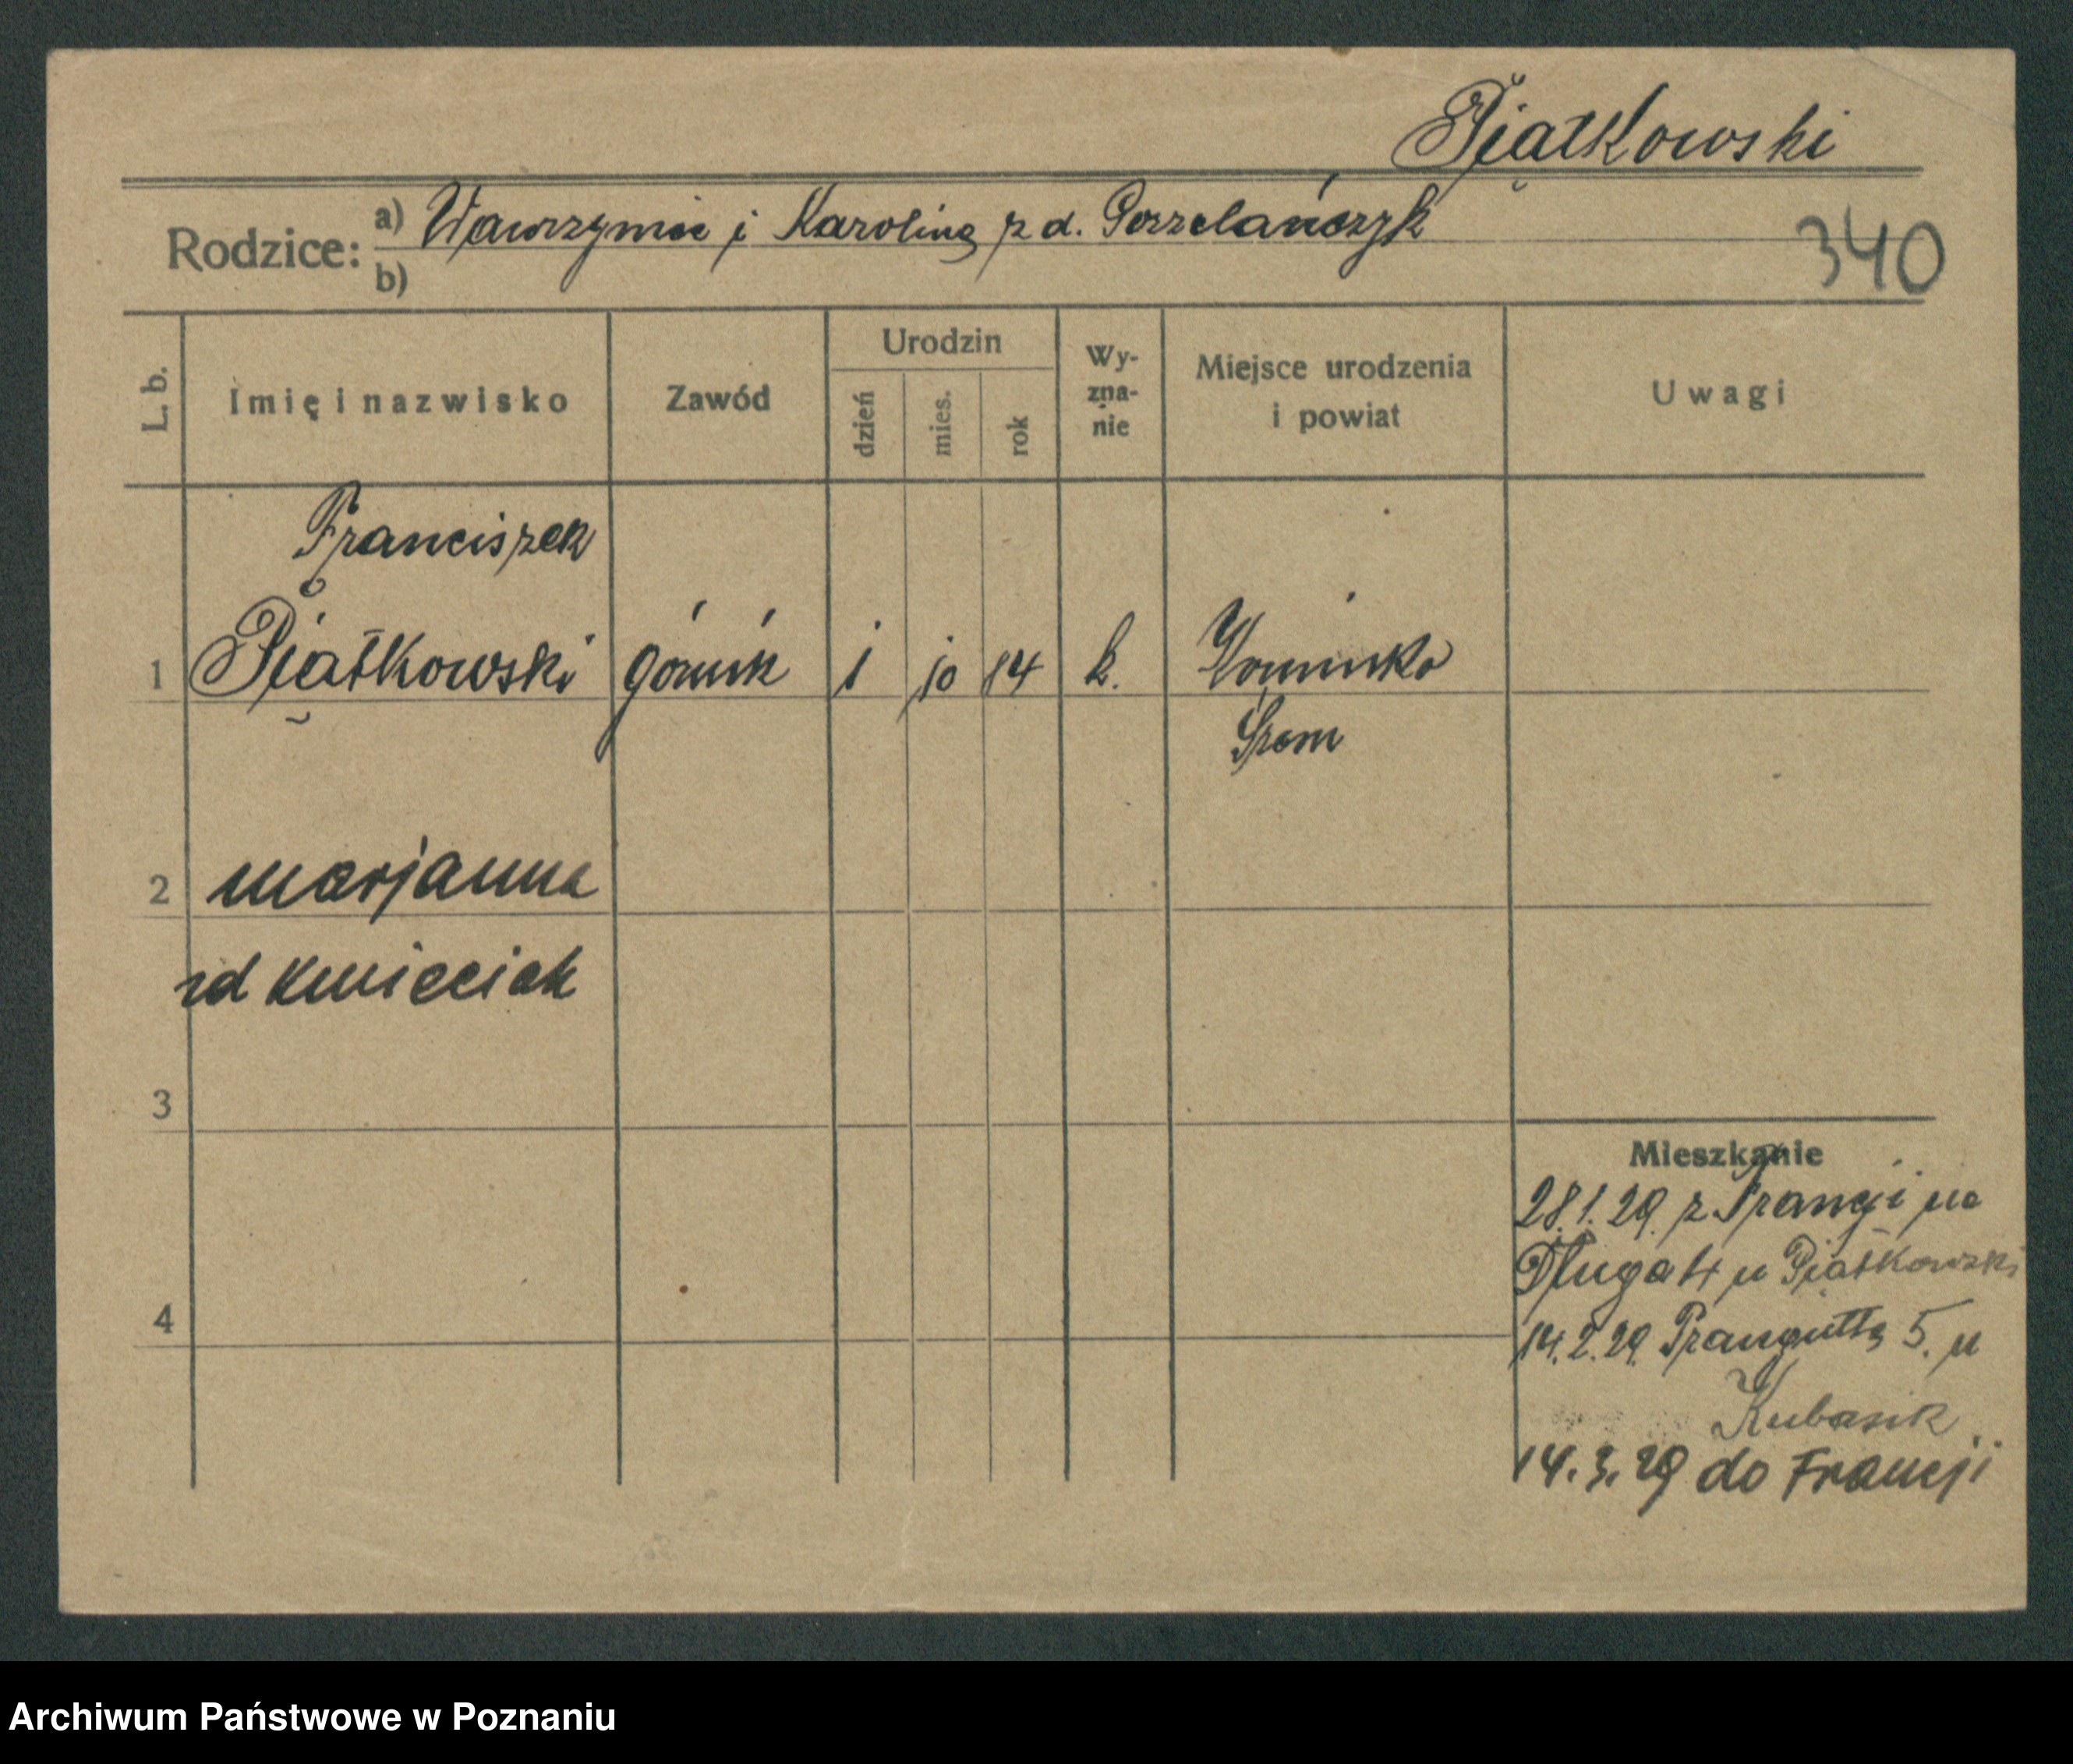 Piątkowski
Rodzice: a) Wawrzynie i Karolina z d. Porzelańczyk
b)
340
L. b. Imię i nazwisko Zawód Urodzin dzień mies. rok Wy-zna-nie Miejsce urodzenia i powiat Uwagi
Franciszek
1 Piątkowski górnik 1 10 14 k.
Śrem
2 Marjanna
zd Kwieciak
3
Mieszkanie
28.1.29. z Francji na
Długa 4 u Piątkowski
4
14.2.29. 5. u
Kubasik
14.3.29 do Francji
Archiwum Państwowe w Poznaniu